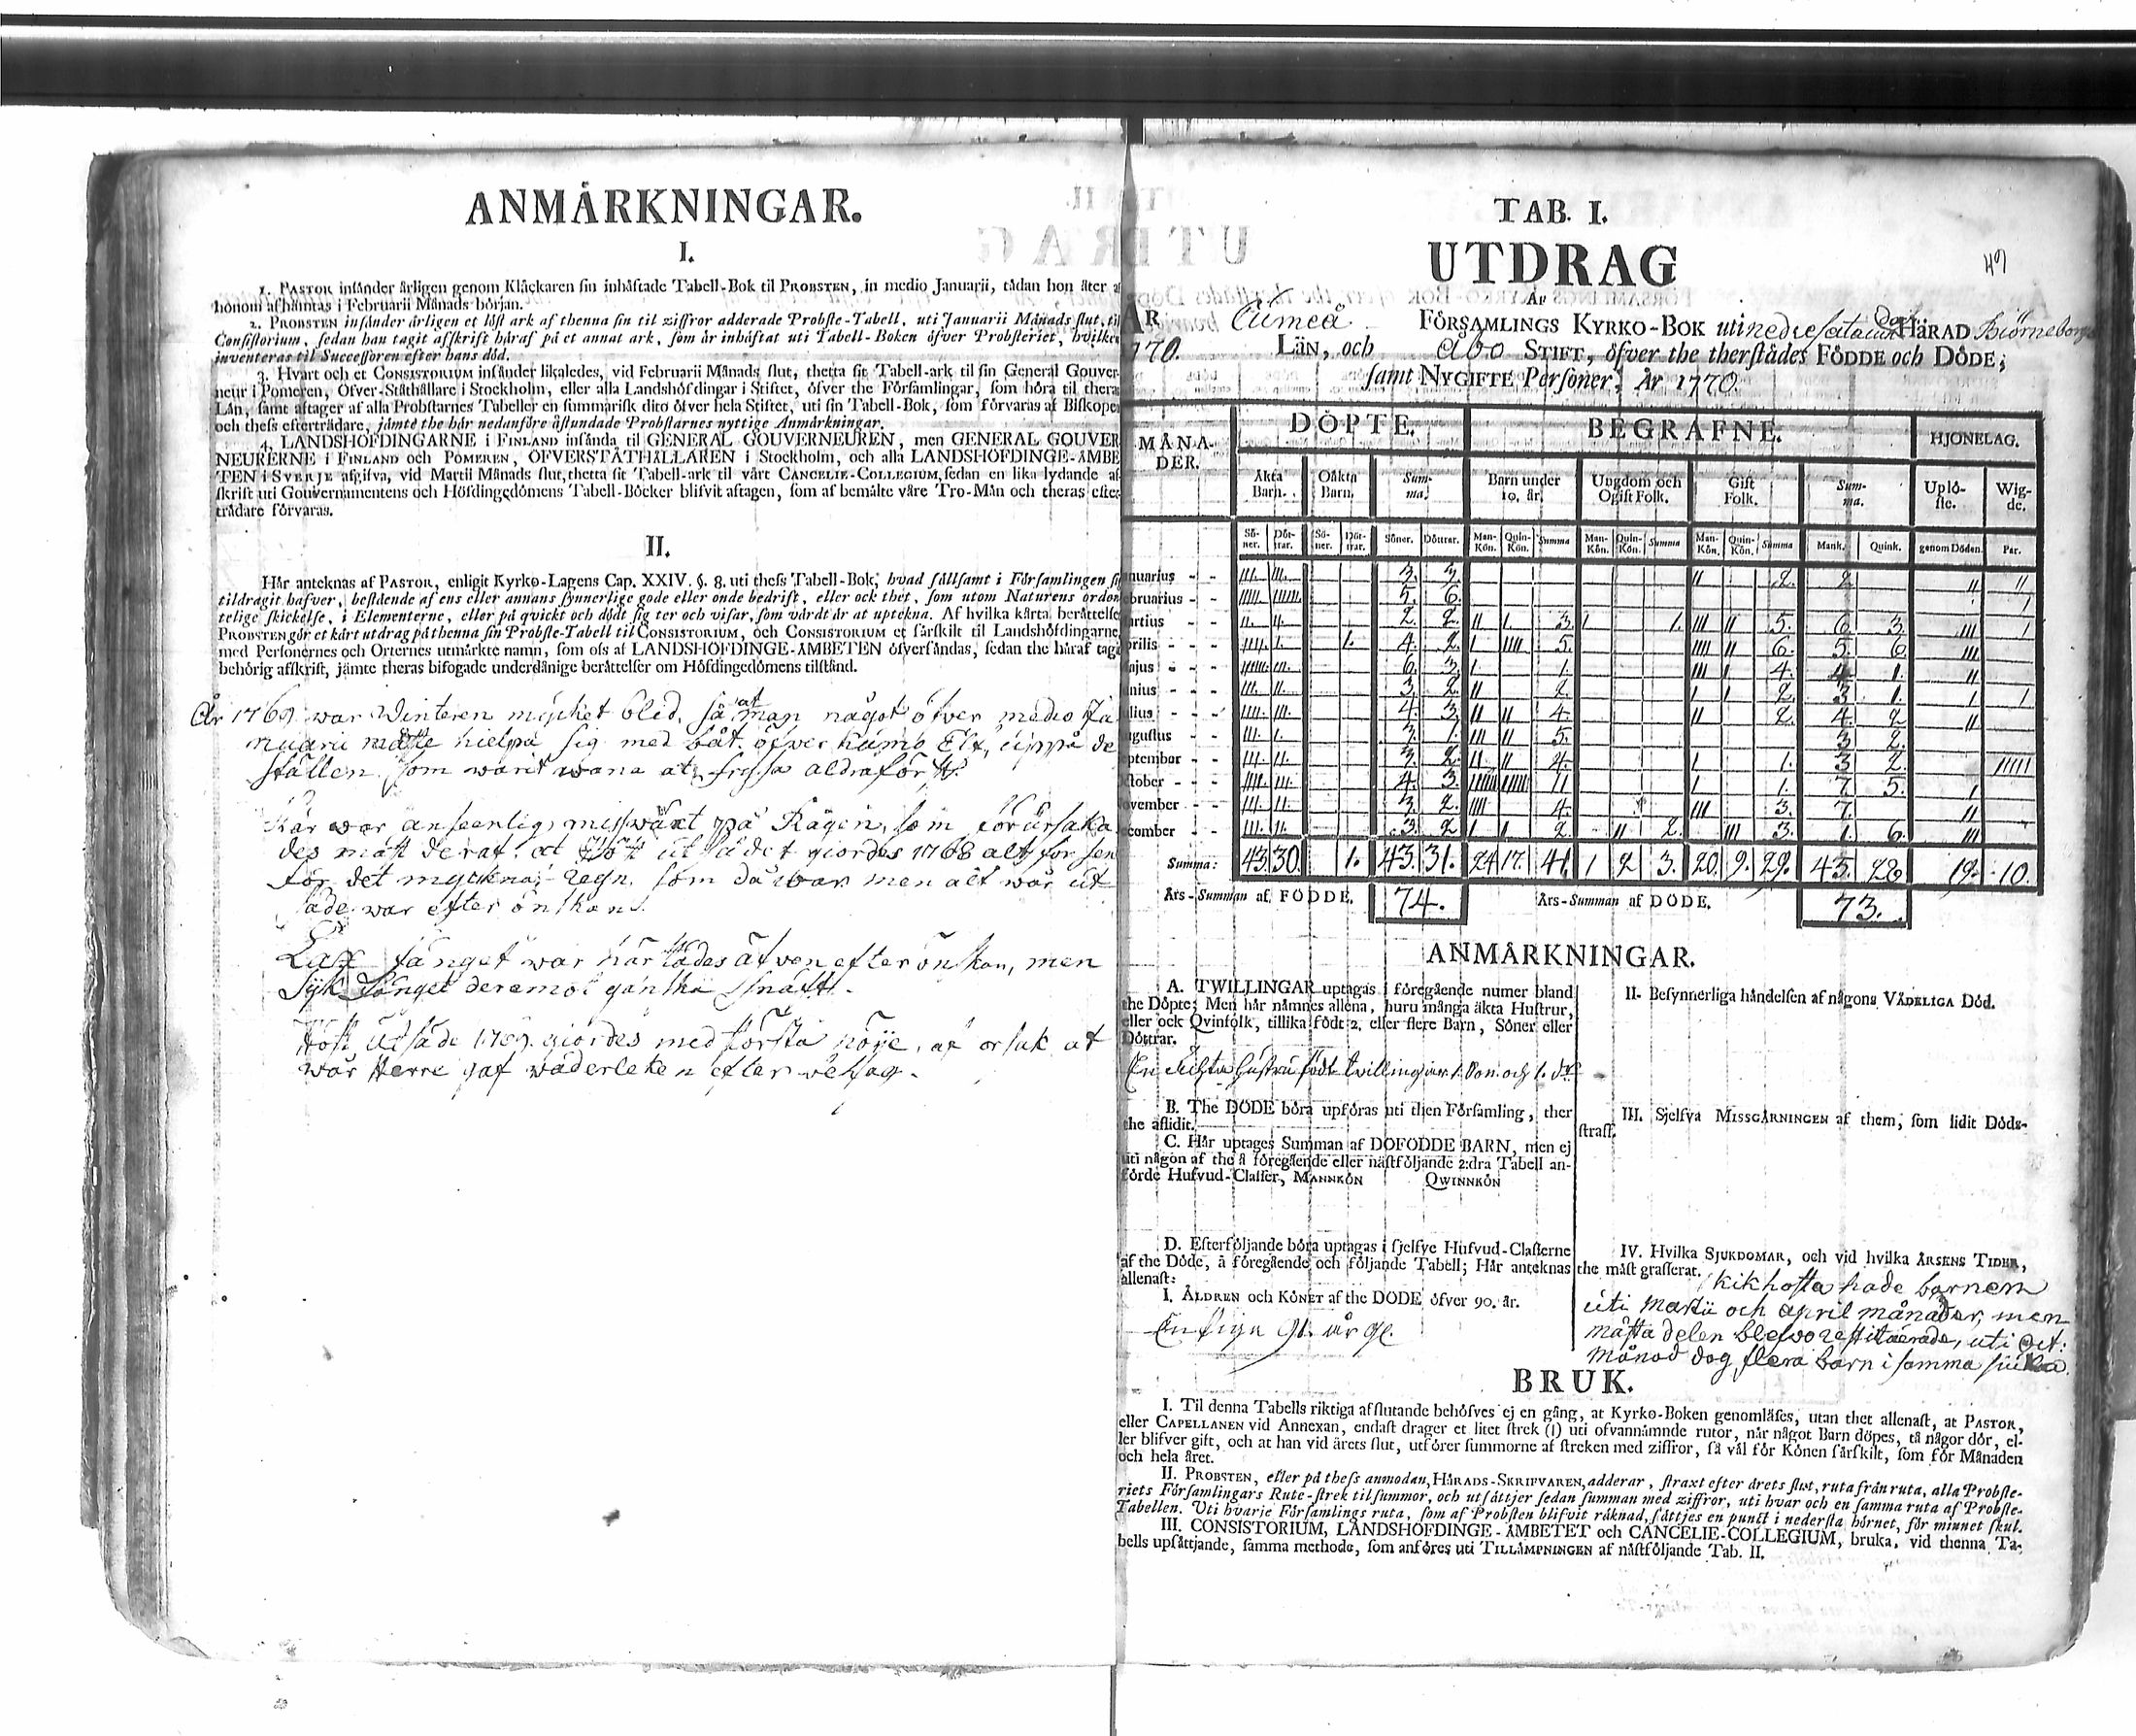 ANMÅRKNINGAR.
I.
1. PASTOR insånder årligen genom Klåckaren sin inhåftade Tabell-Bok til PROBSTEN, in medio Januarii, tådan hon åter af
honom afhåmtas i Februarii Månads början.
2. PROBSTEN insånder årligen et löst ark af thenna sin til ziffror adderade Probste-Tabell, uti Januarii Månads slut, til
Consistorium, sedan han tagit afskrift håraf på et annat ark, som år inhåftat uti Tabell-Boken öfver Probsteriet, hvilken
inventeras til Successoren efter hans död.
3. Hvart och et CONSISTORIUM insånder likaledes, vid Februarii Månads slut, thetta sit Tabell-ark til sin General Gouver-
neur i Pomeren, Öfver-Ståthållare i Stockholm, eller alla Landshöfdingar i Stiftet, öfver the Församlingar, som höra til theras
Lån, samt aftager af alla Probstarnes Tabeller en summarisk dito öfver hela Stiftet, uti sin Tabell-Bok, som förvaras af Biskopen
och thess efterträdare, jåmte the hår nedanföre åstundade Probstarnes nyttige Anmårkningar.
4. LANDSHÖFDINGARNE i FINLAND insånda til GENERAL GOUVERNEUREN, men GENERAL GOUVER-
NEURERNE i FINLAND och POMEREN, ÖFVERSTÅTHÅLLAREN i Stockholm, och alla LANDSHÖFDINGE-ÅMBE-
TEN i SVERJE afgifva, vid Martii Månads slut, thetta sit Tabell-ark til vårt CANCELIE-COLLEGIUM, sedan en lika lydande af-
skrift uti Gouvernamentens och Höfdingedömens Tabell-Böcker blifvit aftagen, som af bemålte våre Tro-Mån och theras efter-
trådare förvaras.
II.
Hår anteknas af PASTOR, enligit Kyrko-Lagens Cap. XXIV. §. 8. uti thess Tabell-Bok, hvad sållsamt i Församlingen sig
tildragit hafver, bestående af ens eller annans synnerlige gode eller onde bedrift, eller ock thet, som utom Naturens orden-
telige skickelse, i Elementerne, eller på qvickt och dödt sig ter och visar, som vårdt år at uptekna. Af hvilka kårta beråttelser
PROBSTEN gör et kårt utdrag på thenna sin Probste-Tabell til CONSISTORIUM, och CONSISTORIUM et sårskilt til Landshöfdingarne,
med Personernes och Orternes utmårkte namn, som oss af LANDSHÖFDINGE-ÅMBETEN öfversåndas, sedan the håraf tagit
behörig afskrift, jåmte theras bifogade underdånige beråttelser om Höfdingedömens tilstånd.
År 1769 war Winteren mycket blid, så at man något öfver medio Ja
nuarii måtte hielpa sig med båt öfver Kumo Elf, uppå de
ställen som warit wana at frysa aldraförst.
Här war ansenlig misswäxt på Rågen, som förorsaka
des mäst deraf, at Höst utsädet giordes 1768 alt for sen
för det myckna Regn som då war men alt wår ut
säde war efter önskan.
Lax fånget war härstädes äfven efter önskan, men
Syk fånget deremot ganska snått.
Höst utsäde 1769 giordes med första nöije, af orsak at
wår Herre gaf wäderleken efter behag.
TAB. I.
UTDRAG
49
AF
ÅR Eumeå FÖRSAMLINGS KYRKO-BOK uti nedre Satacunda HÄRAD Biörneborgs
1770. LÄN, och Åbo STIFT, öfver the therstådes FÖDDE och DÖDE;
samt NYGIFTE Personer, År 1770
MÅNA-DER. DÖPTE. BEGRAFNE. HJONELAG.
Åkta Barn. Oåkta Barn. Sum-ma. Barn under 10. år. Ungdom och Ogift Folk. Gift Folk. Sum-ma. Uplö-ste. Wig-de.
Sö-ner. Döt-trar. Sö-ner. Döt-trar. Söner. Döttrar. Man-Kön. Quin-Kön. Summa Man-Kön. Quin-Kön. Summa Man-Kön. Quin-Kön. Summa Mank. Quink. genom Döden. Par.
Januarius III. III. 3. 3. II 2. 2. II II
Februarius IIIII IIIIII 5. 6. I
Martius II. II. 2. 2. II I. 3. I 1. III II 5. 6. 3. III I
Aprilis IIII. I. 1. 4. 2. I IIII 5. IIII II 6. 5. 6. III
Majus IIIIII III. 6. 3. I 1. III I 4. 4. 1. II
Junius III. II. 3. 2. II 2. I I 2. 3. 1. I I
Julius IIII. III. 4. 3. II II 4. II 2. 4. 2. II
Augustus III. I. 3. 1. III II 5. 3 2.
September III. II. 3. 2. II II 4. I 1. 3 2. IIIII
October IIII. III. 4. 3. IIIIII IIIII 11 I 1. 7. 5. I
November III. II. 3. 2. IIII 4. III 3. 7. II
December III. II. 3. 2 I I 2. II 2. III 3. 1. 6. III
Summa: 43. 30. 1. 43. 31. 24 17. 41. 1 2 3. 20. 9. 29. 45. 28 19. 10.
Års-Summan af FÖDDE. 74. Års-Summan af DÖDE. 73.
ANMÅRKNINGAR.
A. TWILLINGAR uptagas i föregående numer bland
the Döpte; Men hår nåmnes allena, huru många åkta Hustrur,
eller ock Qvinfolk, tillika födt 2. eller flere Barn, Söner eller
Döttrar.
En Ächta hustru födt twillingar 1. Son och 1. dr
B. The DÖDE böra upföras uti then Församling, ther
the aflidit.
C. Hår uptages Summan af DÖFÖDDE BARN, men ej
uti någon af the å föregående eller nåstföljande 2:dra Tabell an-
förde Hufvud-Classer, MANNKÖN QWINNKÖN
D. Efterföljande böra uptagas i sjelfve Hufvud-Classerne
af the Döde, å föregående och följande Tabell; Hår anteknas
allenast:
I. ÅLDREN och KÖNET af the DÖDE öfver 90. år.
En Piga 91. år gl.
II. Besynnerliga håndelsen af någons VÅDELIGA Död.
III. Sjelfva MISSGÅRNINGEN af them, som lidit Döds-
straff.
IV. Hvilka SJUKDOMAR, och vid hvilka ÅRSENS TIDER,
the måst grasserat. Kikhosta hade barnen
uti Martii och April månader, men
måsta delen blefvo restituerade, uti Oct:
månad dog flera barn i samma siuka
BRUK.
I. Til denna Tabells riktiga afslutande behöfves ej en gång, at Kyrko-Boken genomläses, utan thet allenast, at PASTOR,
eller CAPELLANEN vid Annexan, endast drager et litet strek (I) uti ofvannåmnde rutor, når något Barn döpes, tå någor dör, el-
ler blifver gift, och at han vid årets slut, utförer summorne af streken med ziffror, så vål för Könen sårskilt, som för Månaden
och hela året.
II. PROBSTEN, eller på thess anmodan, HÄRADS-SKRIFVAREN, adderar, straxt efter årets slut, ruta från ruta, alla Probste-
riets Församlingars Rute-strek til summor, och utsåttjer sedan summan med ziffror, uti hvar och en samma ruta af Probste-
Tabellen. Uti hvarje Församlings ruta, som af Probsten blifvit råknad, såttjes en punkt i nedersta hörnet, för minnet skul.
III. CONSISTORIUM, LANDSHÖFDINGE-ÅMBETET och CANCELIE-COLLEGIUM, bruka, vid thenna Ta-
bells upsåttjande, samma methode, som anföres uti TILLÅMPNINGEN af nåstföljande Tab. II.